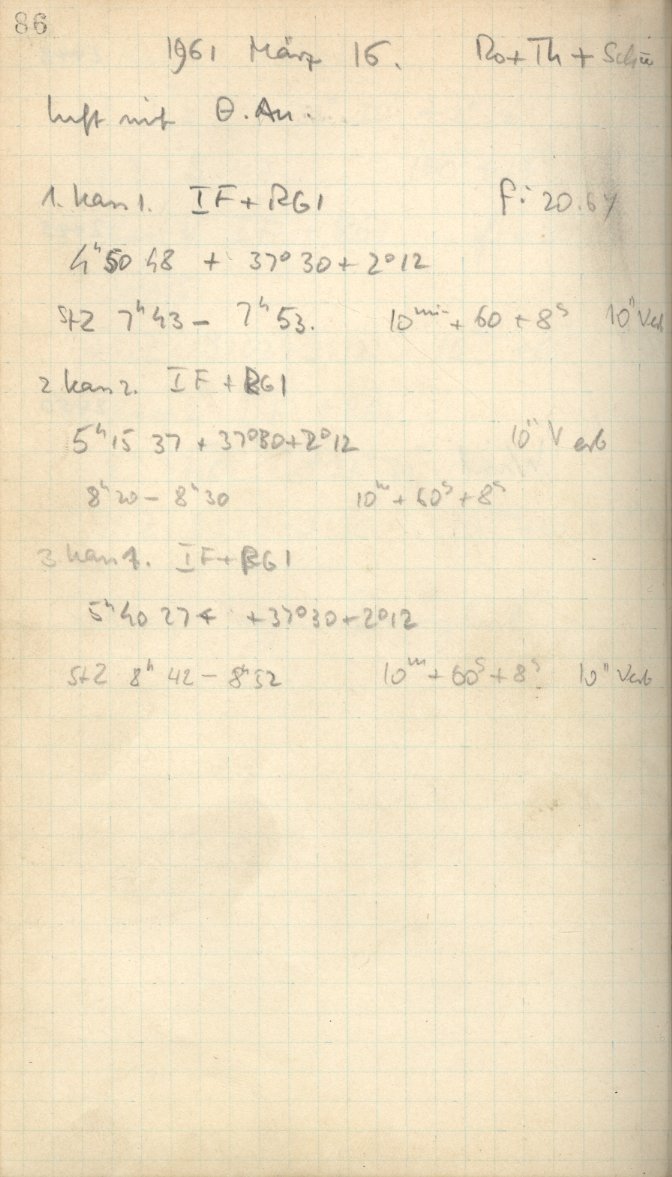 86
1961 März 16. Ro + Th + Schü
Luft mit Θ. Au.
1. Kas 1. IF + RG1 f: 20.67
4ʰ 50 48 + 37° 30 + 2° 12
StZ 7ʰ 43 – 7ʰ 53. 10ᵐⁱⁿ + 60 + 8ˢ 10" Verb
2 Kas 2. IF + RG1
5ʰ 15 37 + 37° 30 + 2° 12 10" Verb
8ʰ 20 – 8ʰ 30 10ᵐ + 60ˢ + 8ˢ
3 Kas 4. IF + RG1
5ʰ 40 27 + 37° 30 + 2° 12
StZ 8ʰ 42 – 8ʰ 52 10ᵐ + 60ˢ + 8ˢ 10" Verb